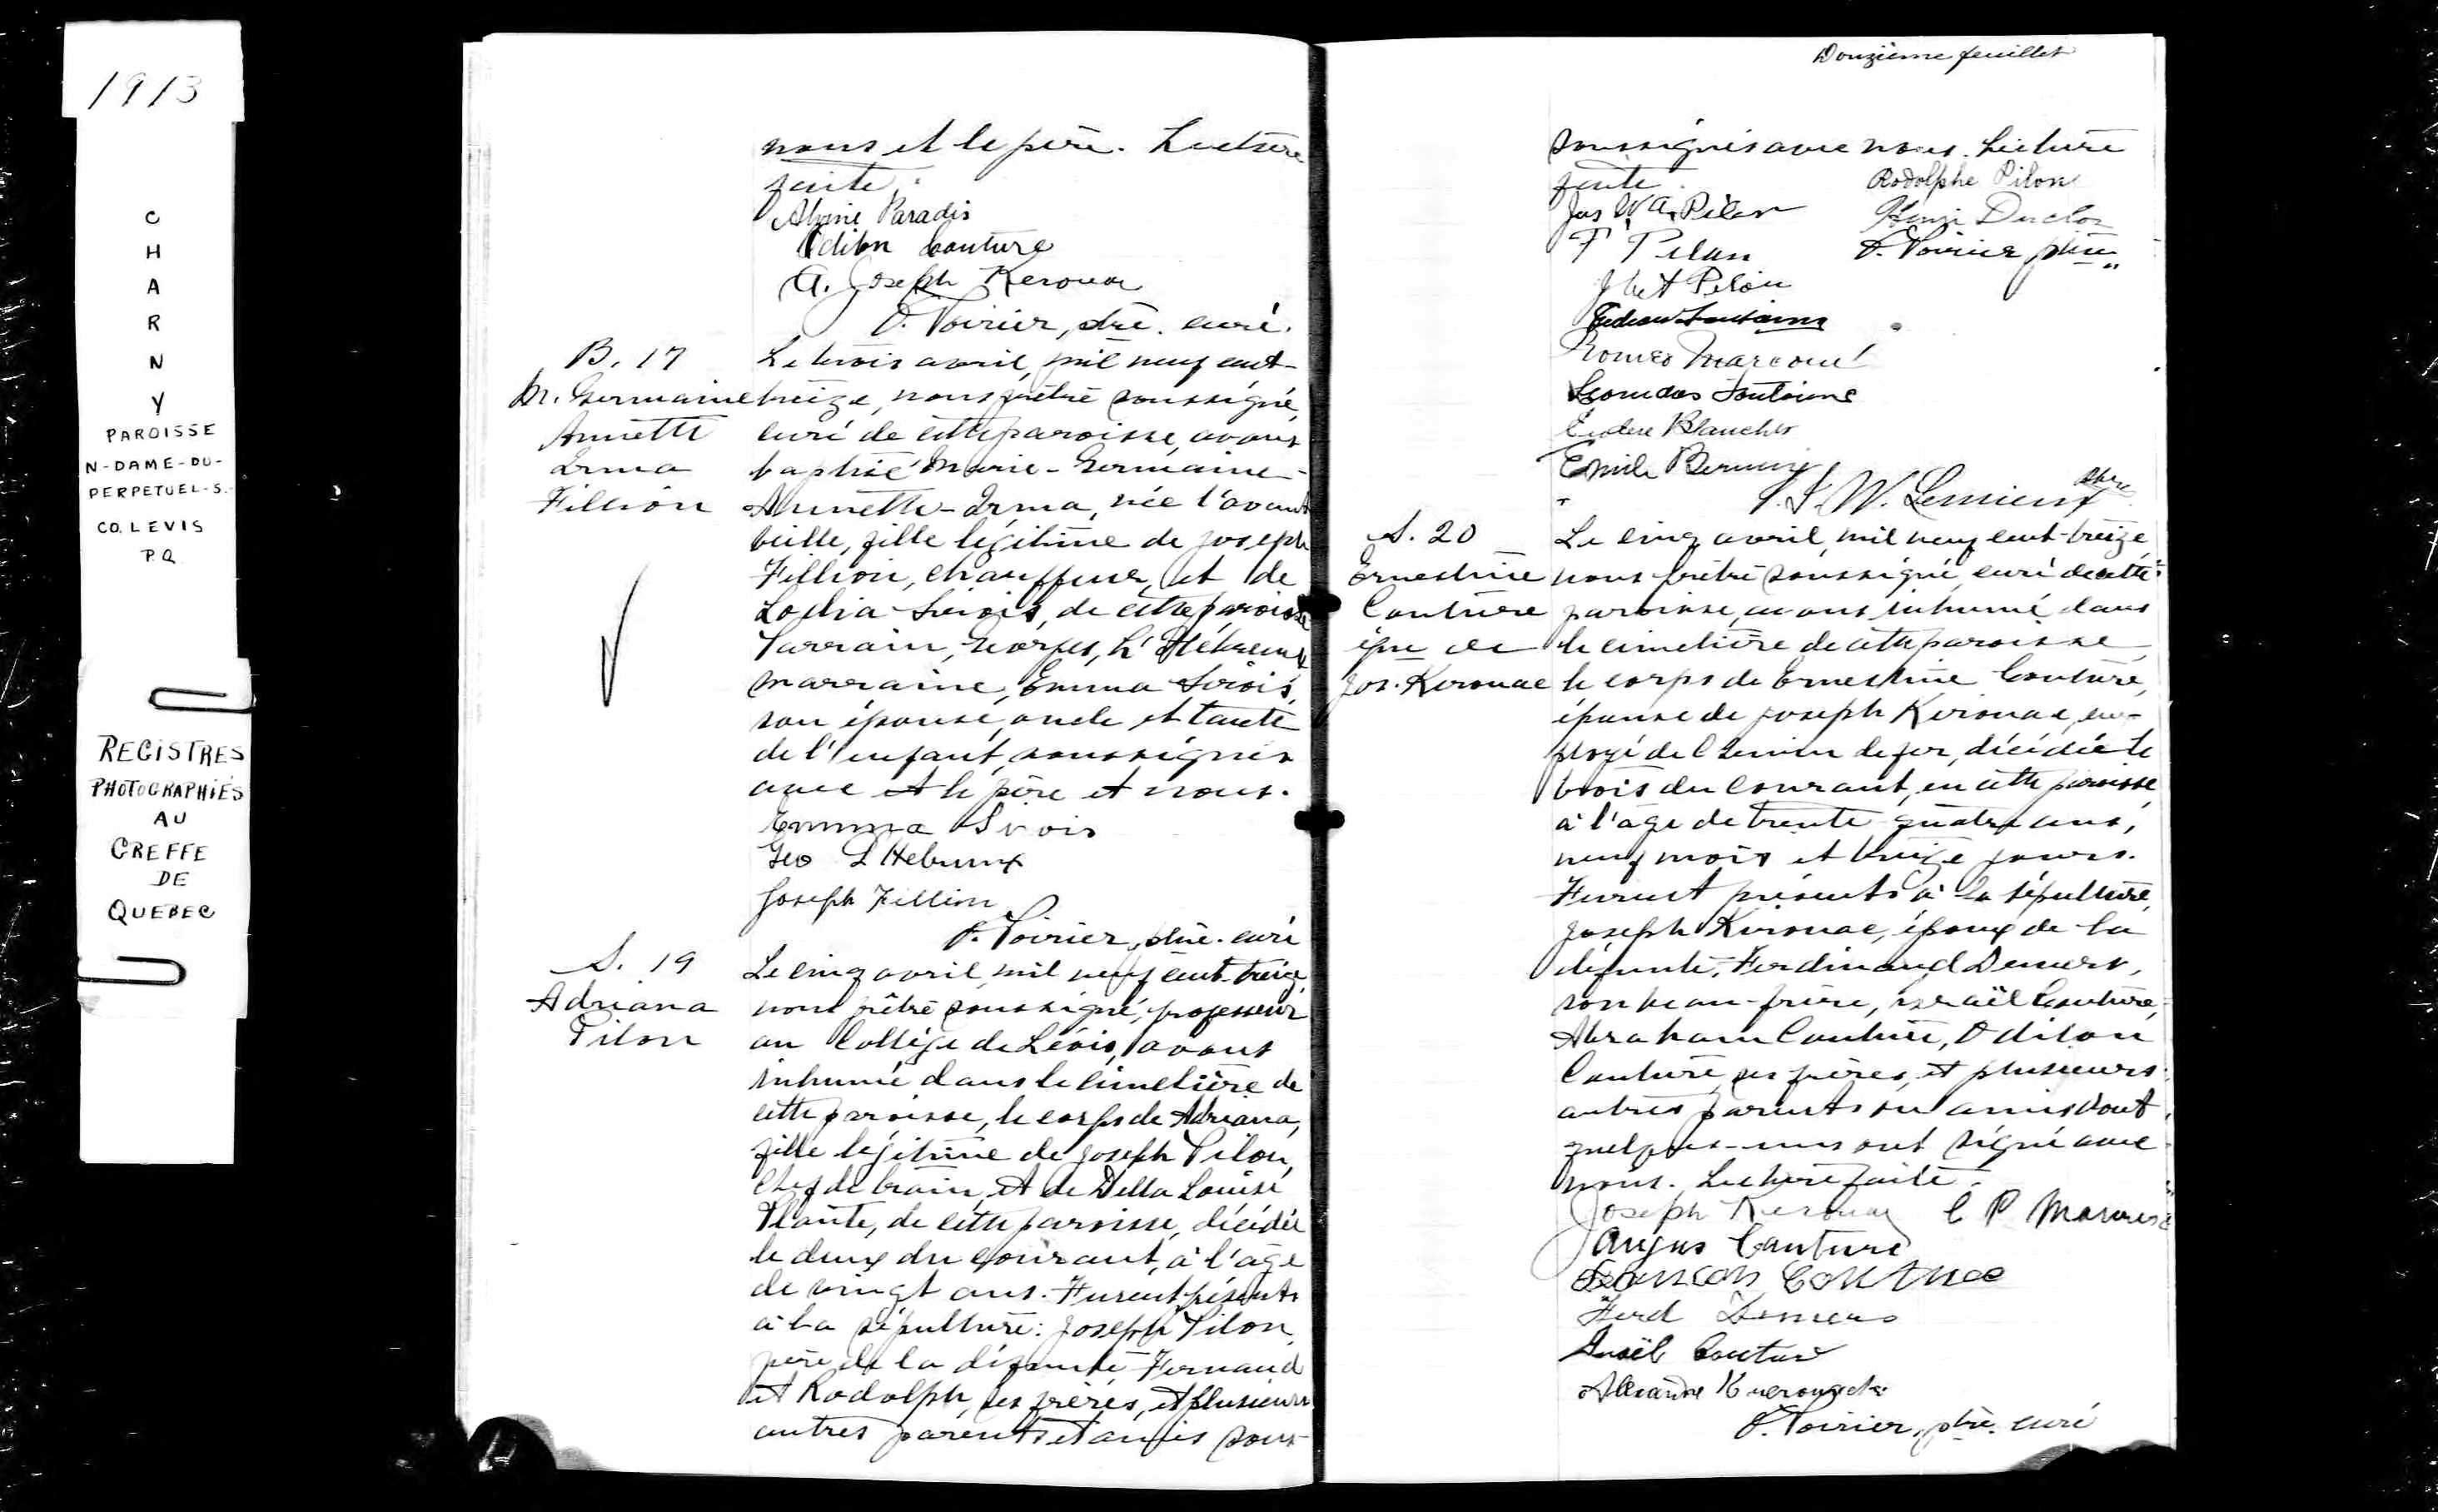 1913
C
H
A
R
N
Y
PAROISSE
N-DAME-DU-
PERPETUEL-S.
CO. LEVIS
P.Q
REGISTRES
PHOTOGRAPHIÉS
AU
GREFFE
DE
QUEBEC
nous et le père. Lecture
faite.
Alvine Paradis
Odilon Couture
A. Joseph Kerouac
O. Poirier, ptre. curé.
B. 17
M. Germaine
Annette
Irma
Fillion
Le trois avril, mil neuf cent-
treize, nous prêtre soussigné,
curé de cette paroisse, avons
baptisé Marie-Germaine-
Annette-Irma, née l'avant
veille, fille légitime de Joseph
Fillion, chauffeur, et de
Lodia Sirois, de cette paroisse
Parrain, Georges, L'Hébreux
marraine, Emma Sirois,
son épouse, oncle et tante
de l'enfant, soussignés
avec et le père et nous.
Emma Sirois
Geo L Hebreux
Joseph Fillion
O. Poirier, ptre. curé
S. 19
Adriana
Pilon
Le cinq avril, mil neuf cent-treize,
nous prêtre soussigné, professeur
au Collège de Lévis, avons
inhumé dans le cimetière de
cette paroisse, le corps de Adriana,
fille légitime de Joseph Pilon,
chef de train, et de Della Louise
Plante, de cette paroisse, décédée
le deux du courant, à l'âge
de vingt ans. Furent présents
à la sépulture: Joseph Pilon,
père de la défunte, Fernand
et Rodolph, ses frères, et plusieurs
autres parents et amis sous-
Douzième feuillet
soussignés avec nous. Lecture
faite. Rodolphe Pilon
Jos W. A. Pilon Henri Duclos
F Pilon O. Poirier ptre
J Pilon
Fontaine
Romeo Marcoux
Leonidas Fontaine
Blanchet
Emile Bernier
J. W. Lemieux ptre
S. 20
Ernestine
Couture
épse de
Jos. Kerouac
Le cinq avril, mil neuf cent-treize,
nous prêtre soussigné, curé de cette
paroisse, avons inhumé dans
le cimetière de cette paroisse,
le corps de Ernestine Couture,
épouse de Joseph Kirouac, em-
ployé de chemin de fer, décédée le
trois du courant, en cette paroisse,
à l'âge de trente quatre ans,
neuf mois et treize jours.
Furent présents à la sépulture,
Joseph Kirouac, époux de la
défunte, Ferdinand Demers,
son beau-frère, Israël Couture,
Abraham Couture, Odilon
Couture, ses frères, et plusieurs
autres parents ou amis dont
quelques-uns ont signé avec
nous. Lecture faite.
Joseph Kerouac C P
Angus Couture
Couture
Ferd Demers
Israël Couture
Alexandre
O. Poirier, ptre. curé